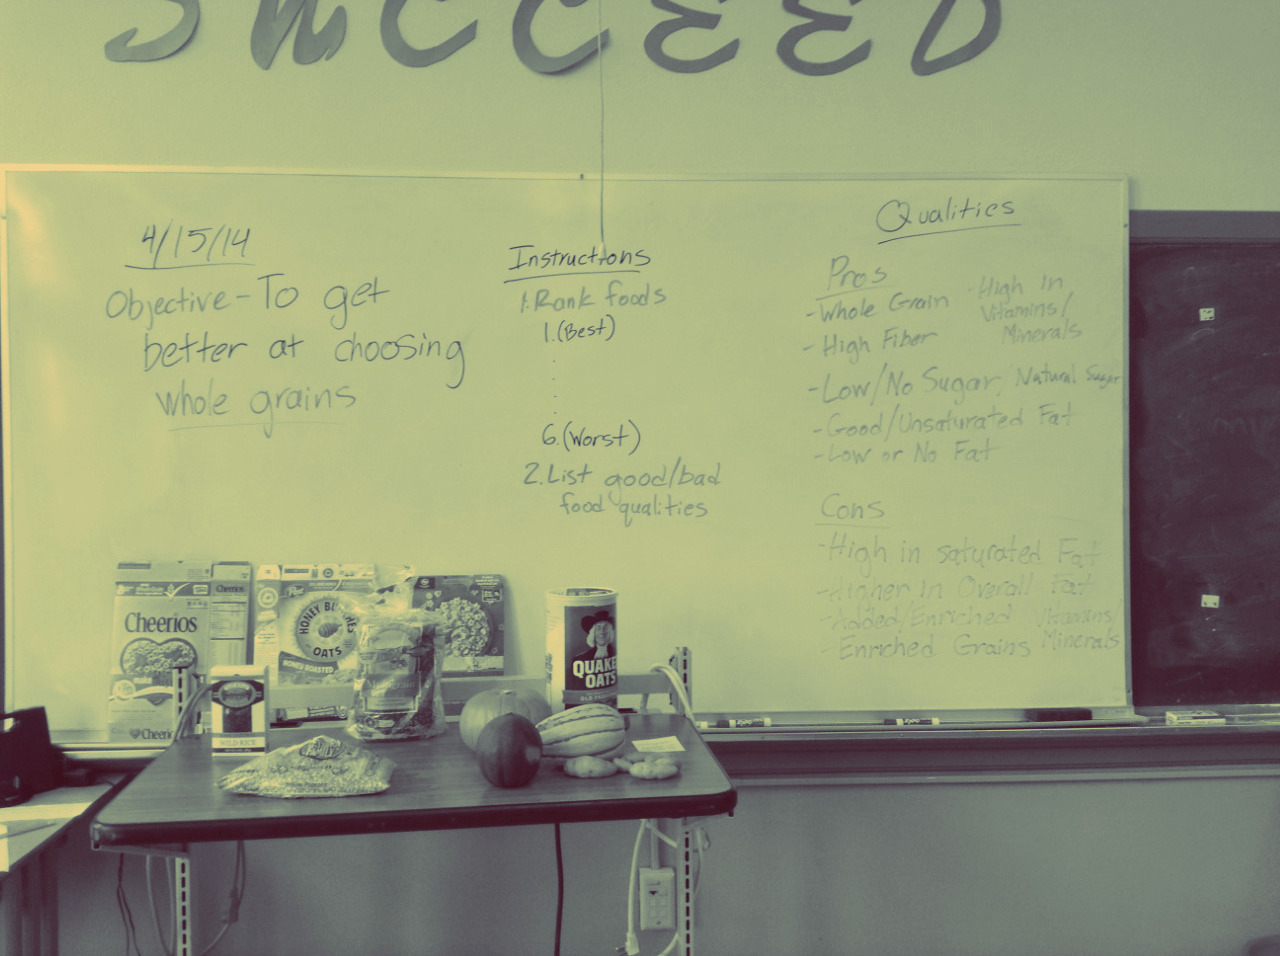 SUCCEED
4/15/14
Objective - To get
better at choosing
whole grains
Instructions
1. Rank foods
1. (Best)
6. (Worst)
2. List good/bad
food qualities
Qualities
Pros
- Whole Grain
- High Fiber
- High in
Vitamins/
Minerals
- Low/No Sugar, Natural Sugar
- Good/Unsaturated Fat
- Low or No Fat
Cons
- High in saturated Fat
- Higher in Overall Fat
- Added/Enriched Vitamins/
Minerals
- Enriched Grains
Cheerios
Cheerios
Cheerios
Post
HONEY BUNCHES
OATS
HONEY ROASTED
WILD RICE
QUAKER
OATS